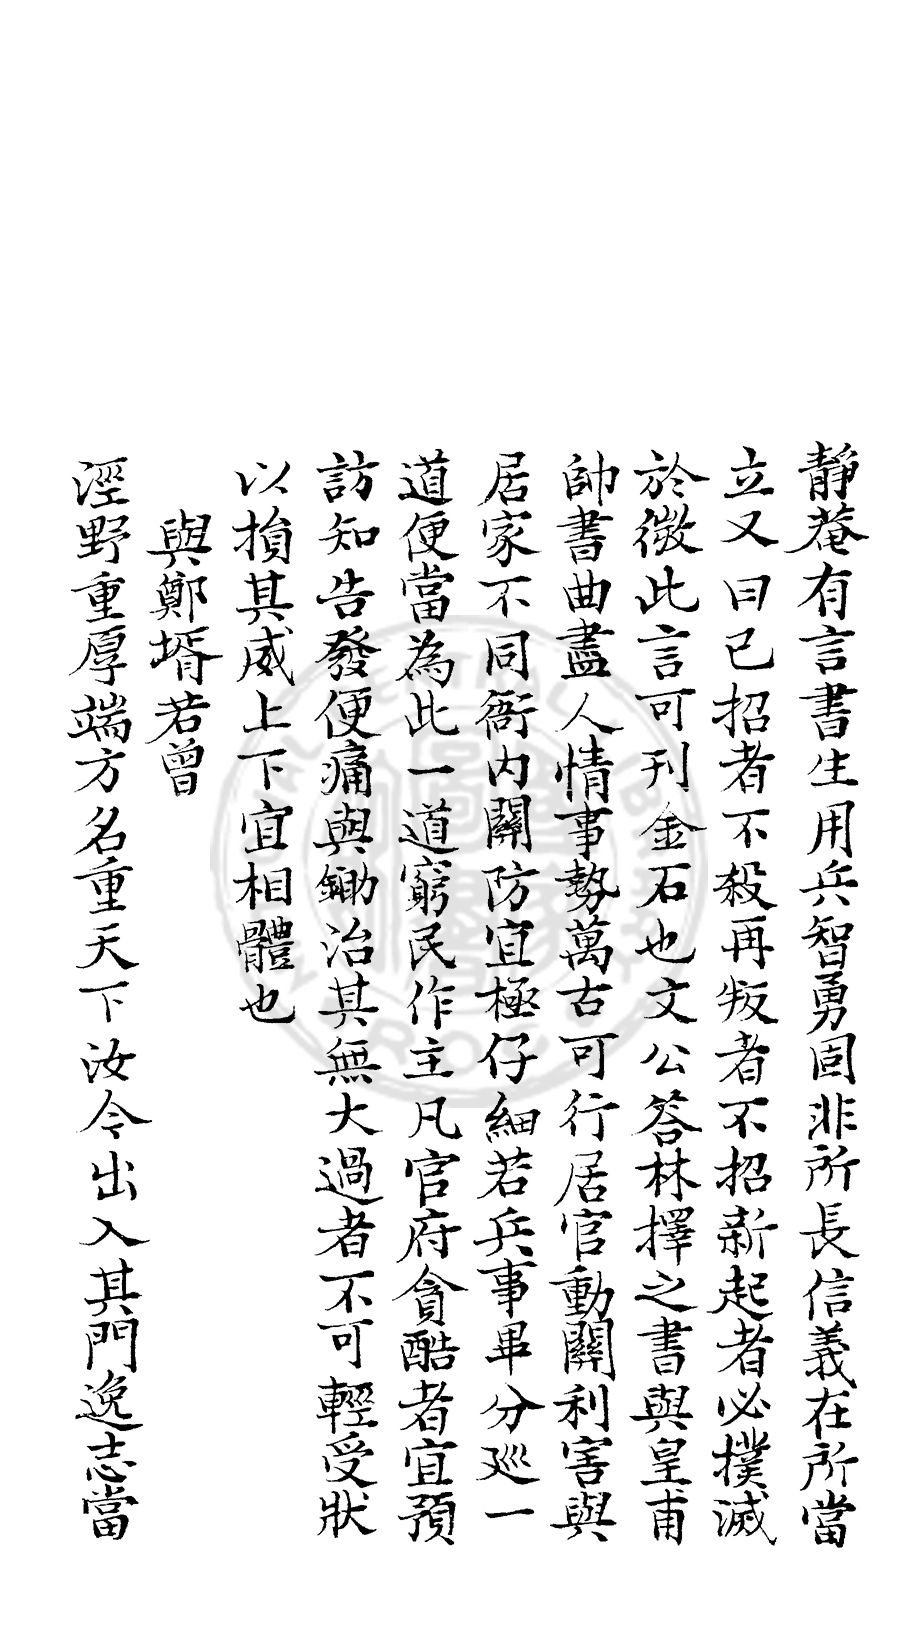 靜菴有言書生用兵智勇固非所長信義在所當
立又曰已招者不殺再叛者不招新起者必撲滅
於微此言可刊金石也文公答林擇之書與皇甫
帥書曲盡人情事勢萬古可行居官動關利害與
居家不同衙內關防宜極仔細若兵事畢分巡一
道便當為此一道窮民作主凡官府貪酷者宜預
訪知告發便痛與鋤治其無大過者不可輕受狀
以損其威上下宜相體也
與鄭壻若曾
涇野重厚端方名重天下汝令出入其門逸志當